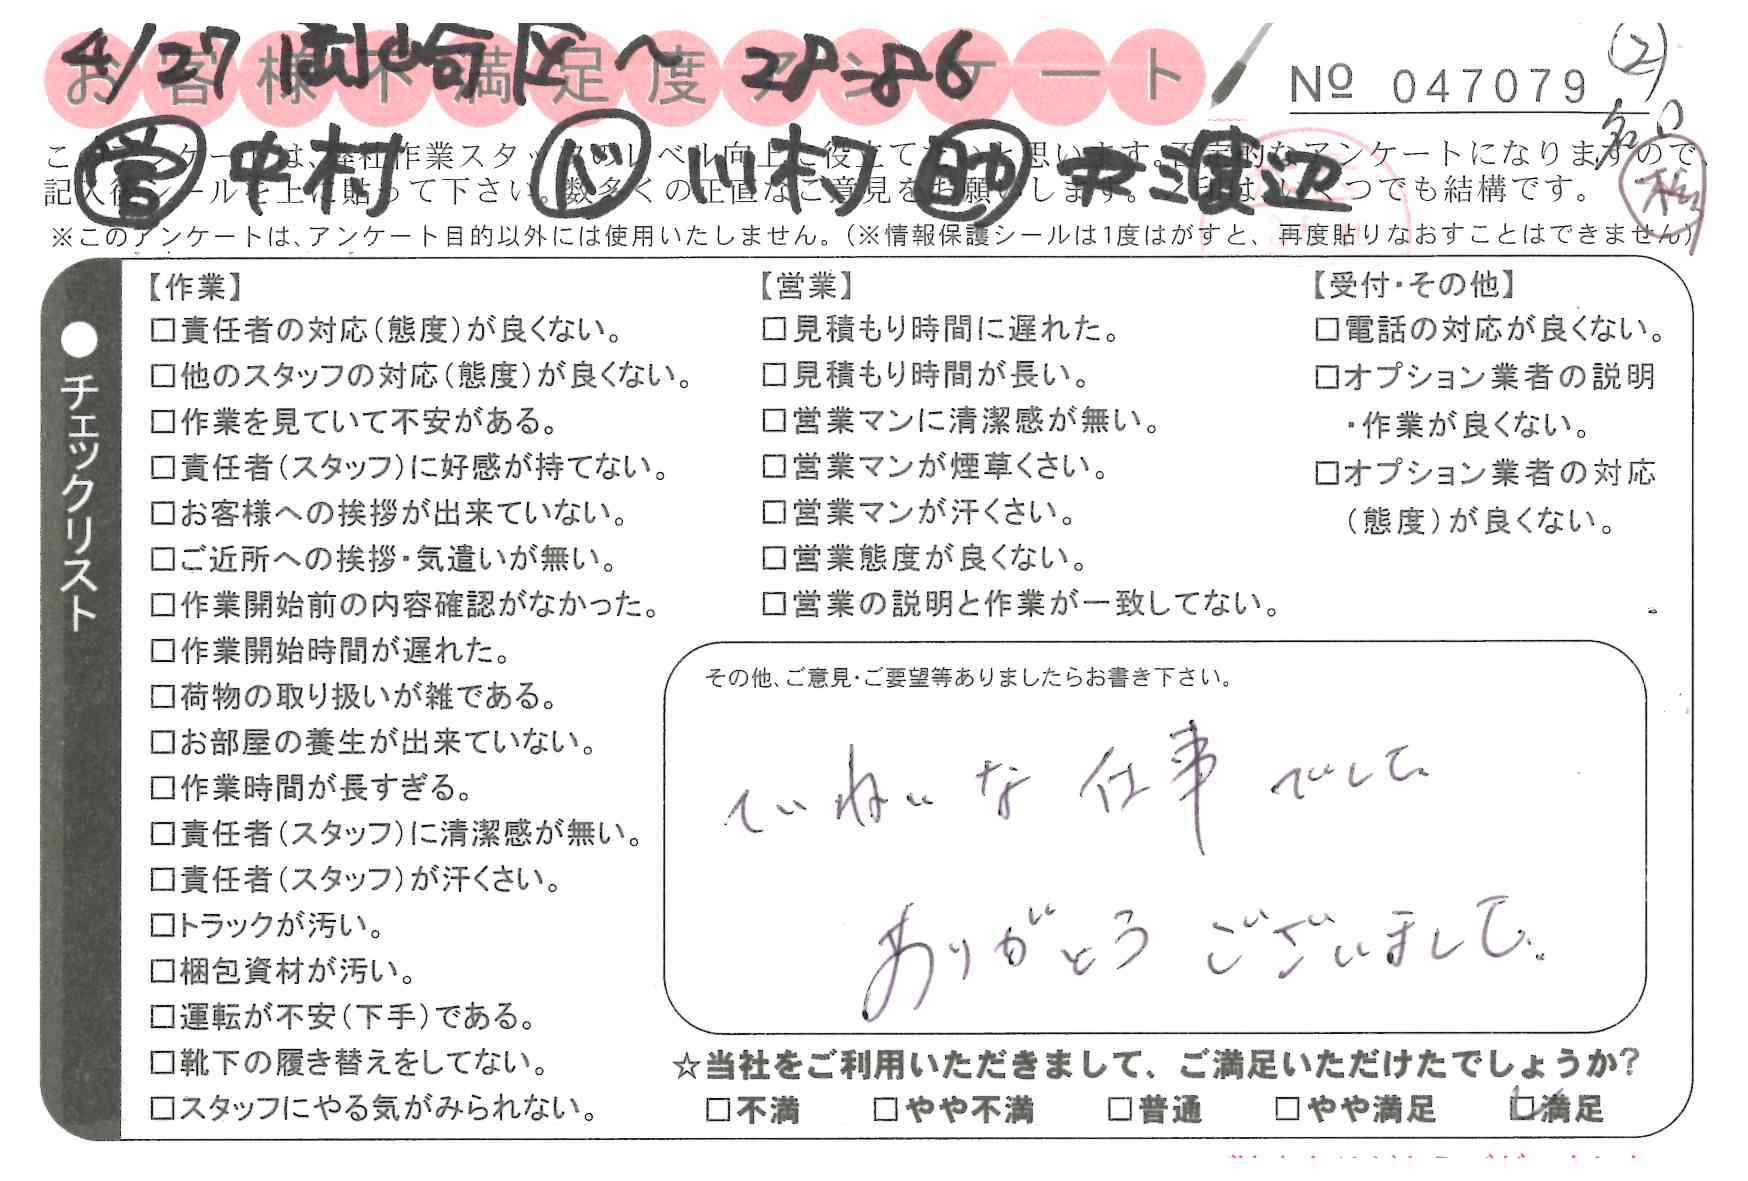 お客様不満足度アンケート
4/27
28-86
(2)
№ 047079
営 中村 川村 助 渡辺
このアンケートは、弊社作業スタッフのレベル向上に役立てたいと思います。不定期的なアンケートになりますので、
記入後シールを上に貼って下さい。数多くの正直なご意見をお願いします。
いくつでも結構です。
※このアンケートは、アンケート目的以外には使用いたしません。(※情報保護シールは1度はがすと、再度貼りなおすことはできません)
●チェックリスト
【作業】
□責任者の対応(態度)が良くない。
□他のスタッフの対応(態度)が良くない。
□作業を見ていて不安がある。
□責任者(スタッフ)に好感が持てない。
□お客様への挨拶が出来ていない。
□ご近所への挨拶・気遣いが無い。
□作業開始前の内容確認がなかった。
□作業開始時間が遅れた。
□荷物の取り扱いが雑である。
□お部屋の養生が出来ていない。
□作業時間が長すぎる。
□責任者(スタッフ)に清潔感が無い。
□責任者(スタッフ)が汗くさい。
□トラックが汚い。
□梱包資材が汚い。
□運転が不安(下手)である。
□靴下の履き替えをしてない。
□スタッフにやる気がみられない。
【営業】
□見積もり時間に遅れた。
□見積もり時間が長い。
□営業マンに清潔感が無い。
□営業マンが煙草くさい。
□営業マンが汗くさい。
□営業態度が良くない。
□営業の説明と作業が一致してない。
【受付・その他】
□電話の対応が良くない。
□オプション業者の説明
・作業が良くない。
□オプション業者の対応
(態度)が良くない。
その他、ご意見・ご要望等ありましたらお書き下さい。
ていねいな仕事でして、
ありがとうございまして。
☆当社をご利用いただきまして、ご満足いただけたでしょうか?
□不満 □やや不満 □普通 □やや満足 □満足